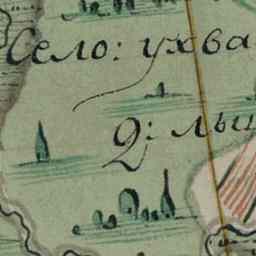 Село: ухва
2: лы